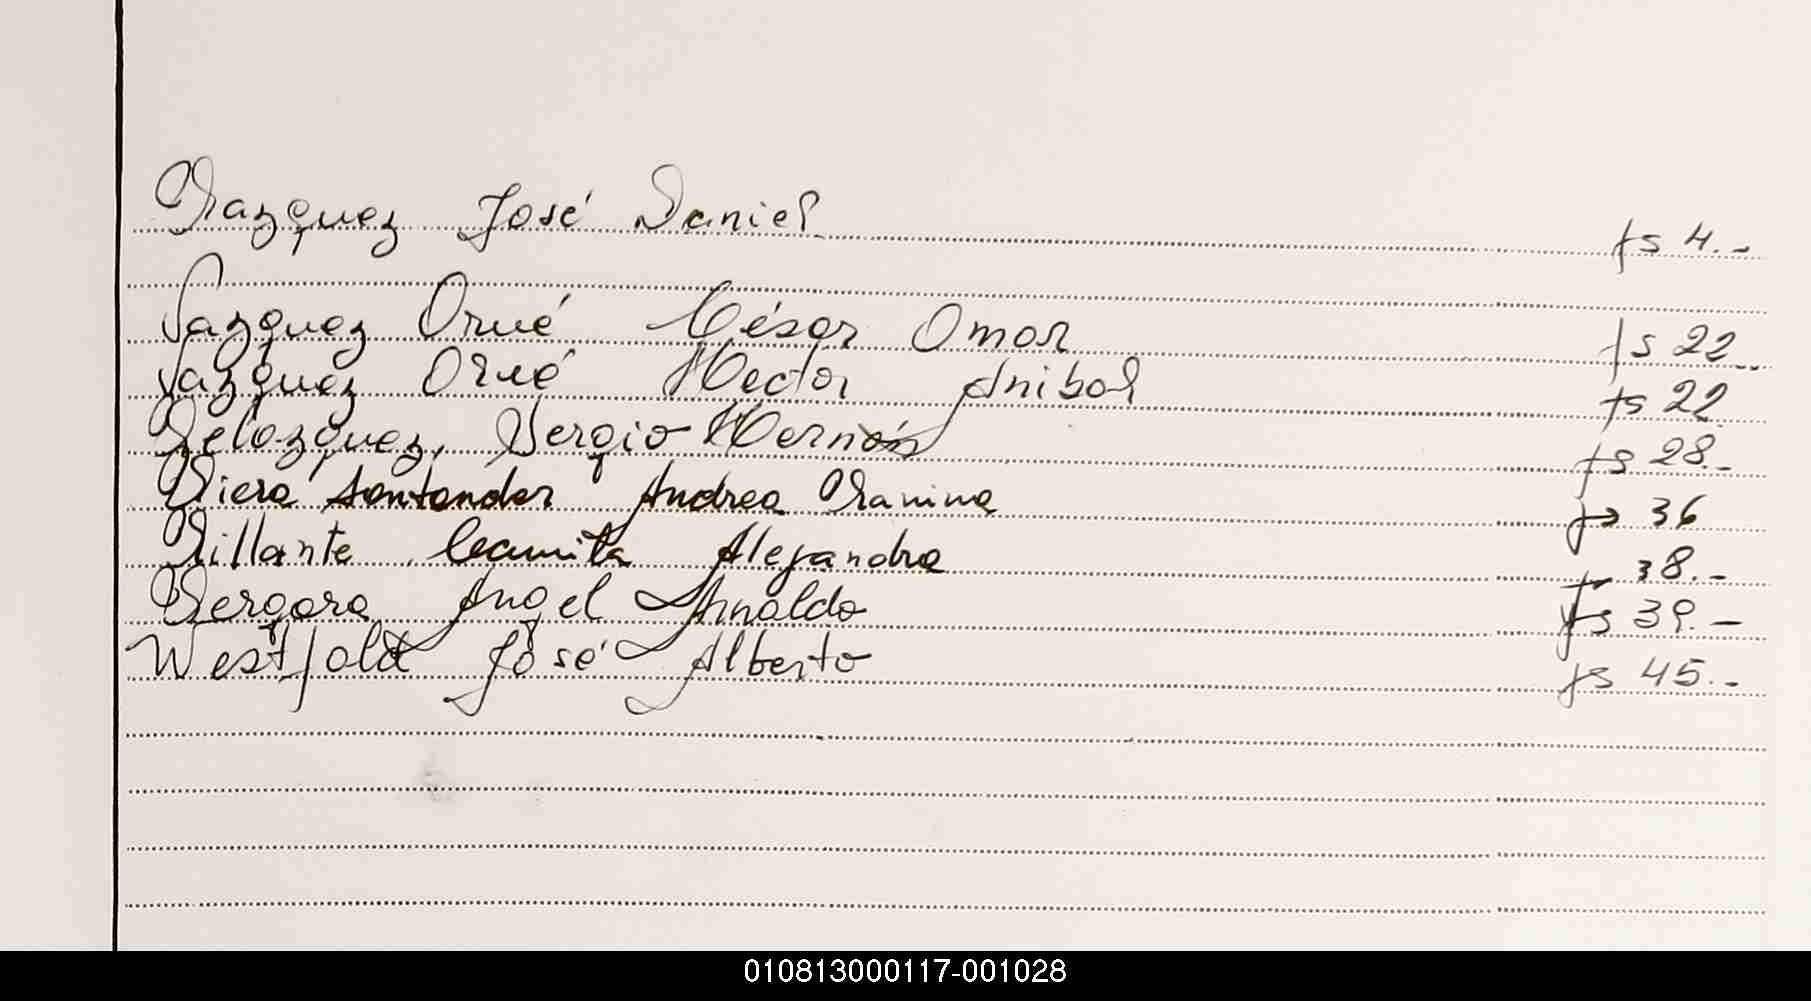 Vazquez José Daniel fs 4.-
Vazquez Orué César Omar fs 22
Vazquez Orué Hector Anibal fs 22
Velazquez, Sergio Hernán fs 28.-
Viera Santander Andrea Vanina fs 36
Villante Camila Alejandra fs 38.-
Vergara Angel Arnaldo fs 39.-
Westfold José Alberto fs 45.-
010813000117-001028